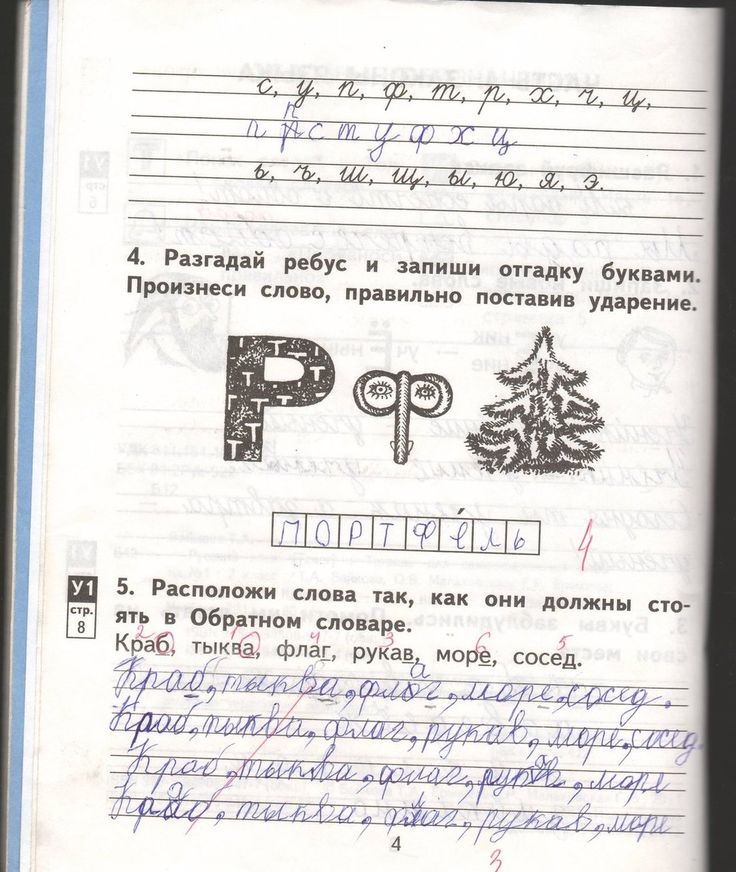 с, у, п, ф, т, р, х, ч, ц,
п
п р с т у ф х ц
ь, ъ, ш, щ, ы, ю, я, э.
4. Разгадай ребус и запиши отгадку буквами.
Произнеси слово, правильно поставив ударение.
ПОРТФЕЛЬ
4
У1
стр.
8
5. Расположи слова так, как они должны сто-
ять в Обратном словаре.
2 1 4 3 6 5
Краб, тыква, флаг, рукав, море, сосед.
а
Краб, тыква, флог, море, сосед.
Краб, тыква, флаг, рукав, море, сосед.
Краб, тыква, флаг, рукав, море
Краб, тыква, флаг, рукав, море
4
3